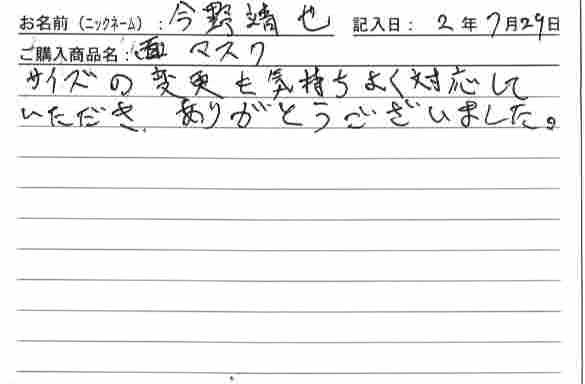 お名前（ニックネーム）：今野靖也 記入日： 2年 7月29日
ご購入商品名：面マスク
サイズの変更も気持ちよく対応して
いただき、ありがとうございました。